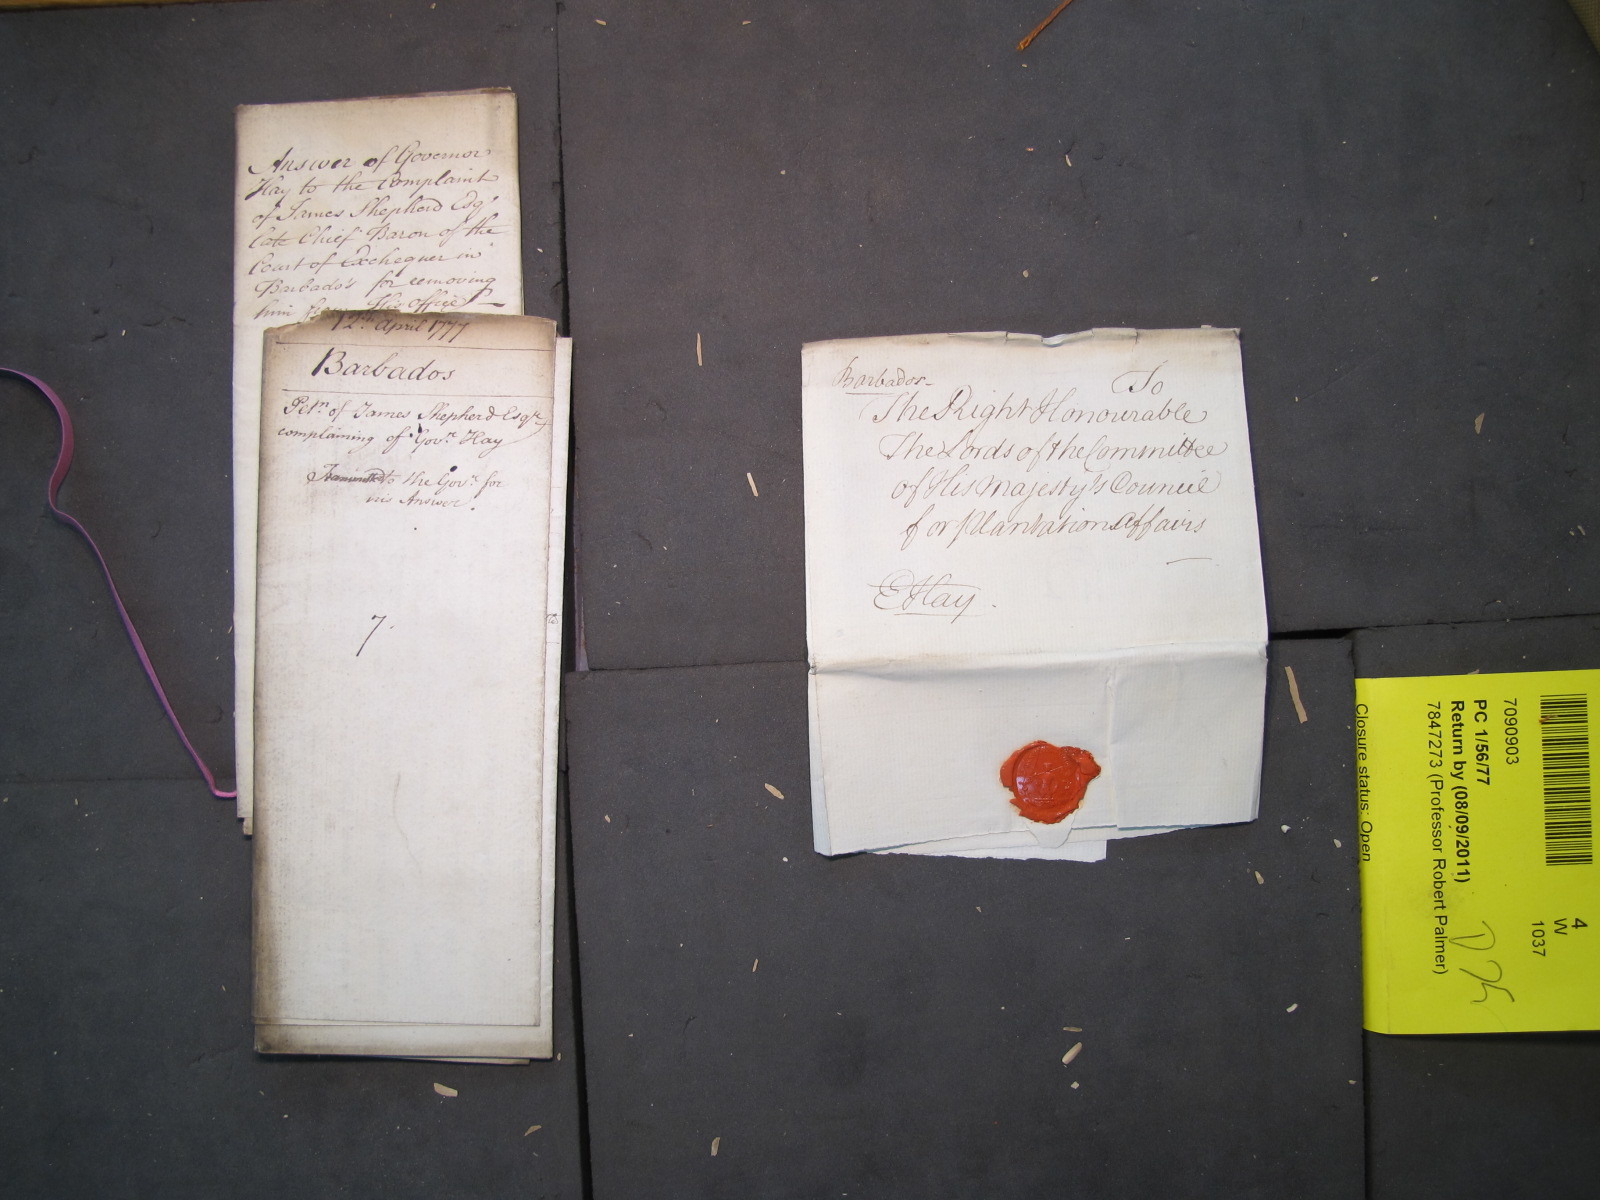 Answer of Governor
Hay to the Complaint
of James Shepherd Esqr
late Chief Baron of the
Court of Exchequer in
Barbado's for removing
him from His Office
12th April 1777
Barbados
Petn of James Shepherd Esqr
complaining of Govr Hay
Transmitted to the Govr for
his Answer.
7.
Barbados
To
The Right Honourable
The Lords of the Committee
of His Majesty's Council
for Plantation Affairs
EHay.
4
W
1037
7090903
PC 1/56/77
Return by (08/09/2011)
7847273 (Professor Robert Palmer)
Closure status: Open